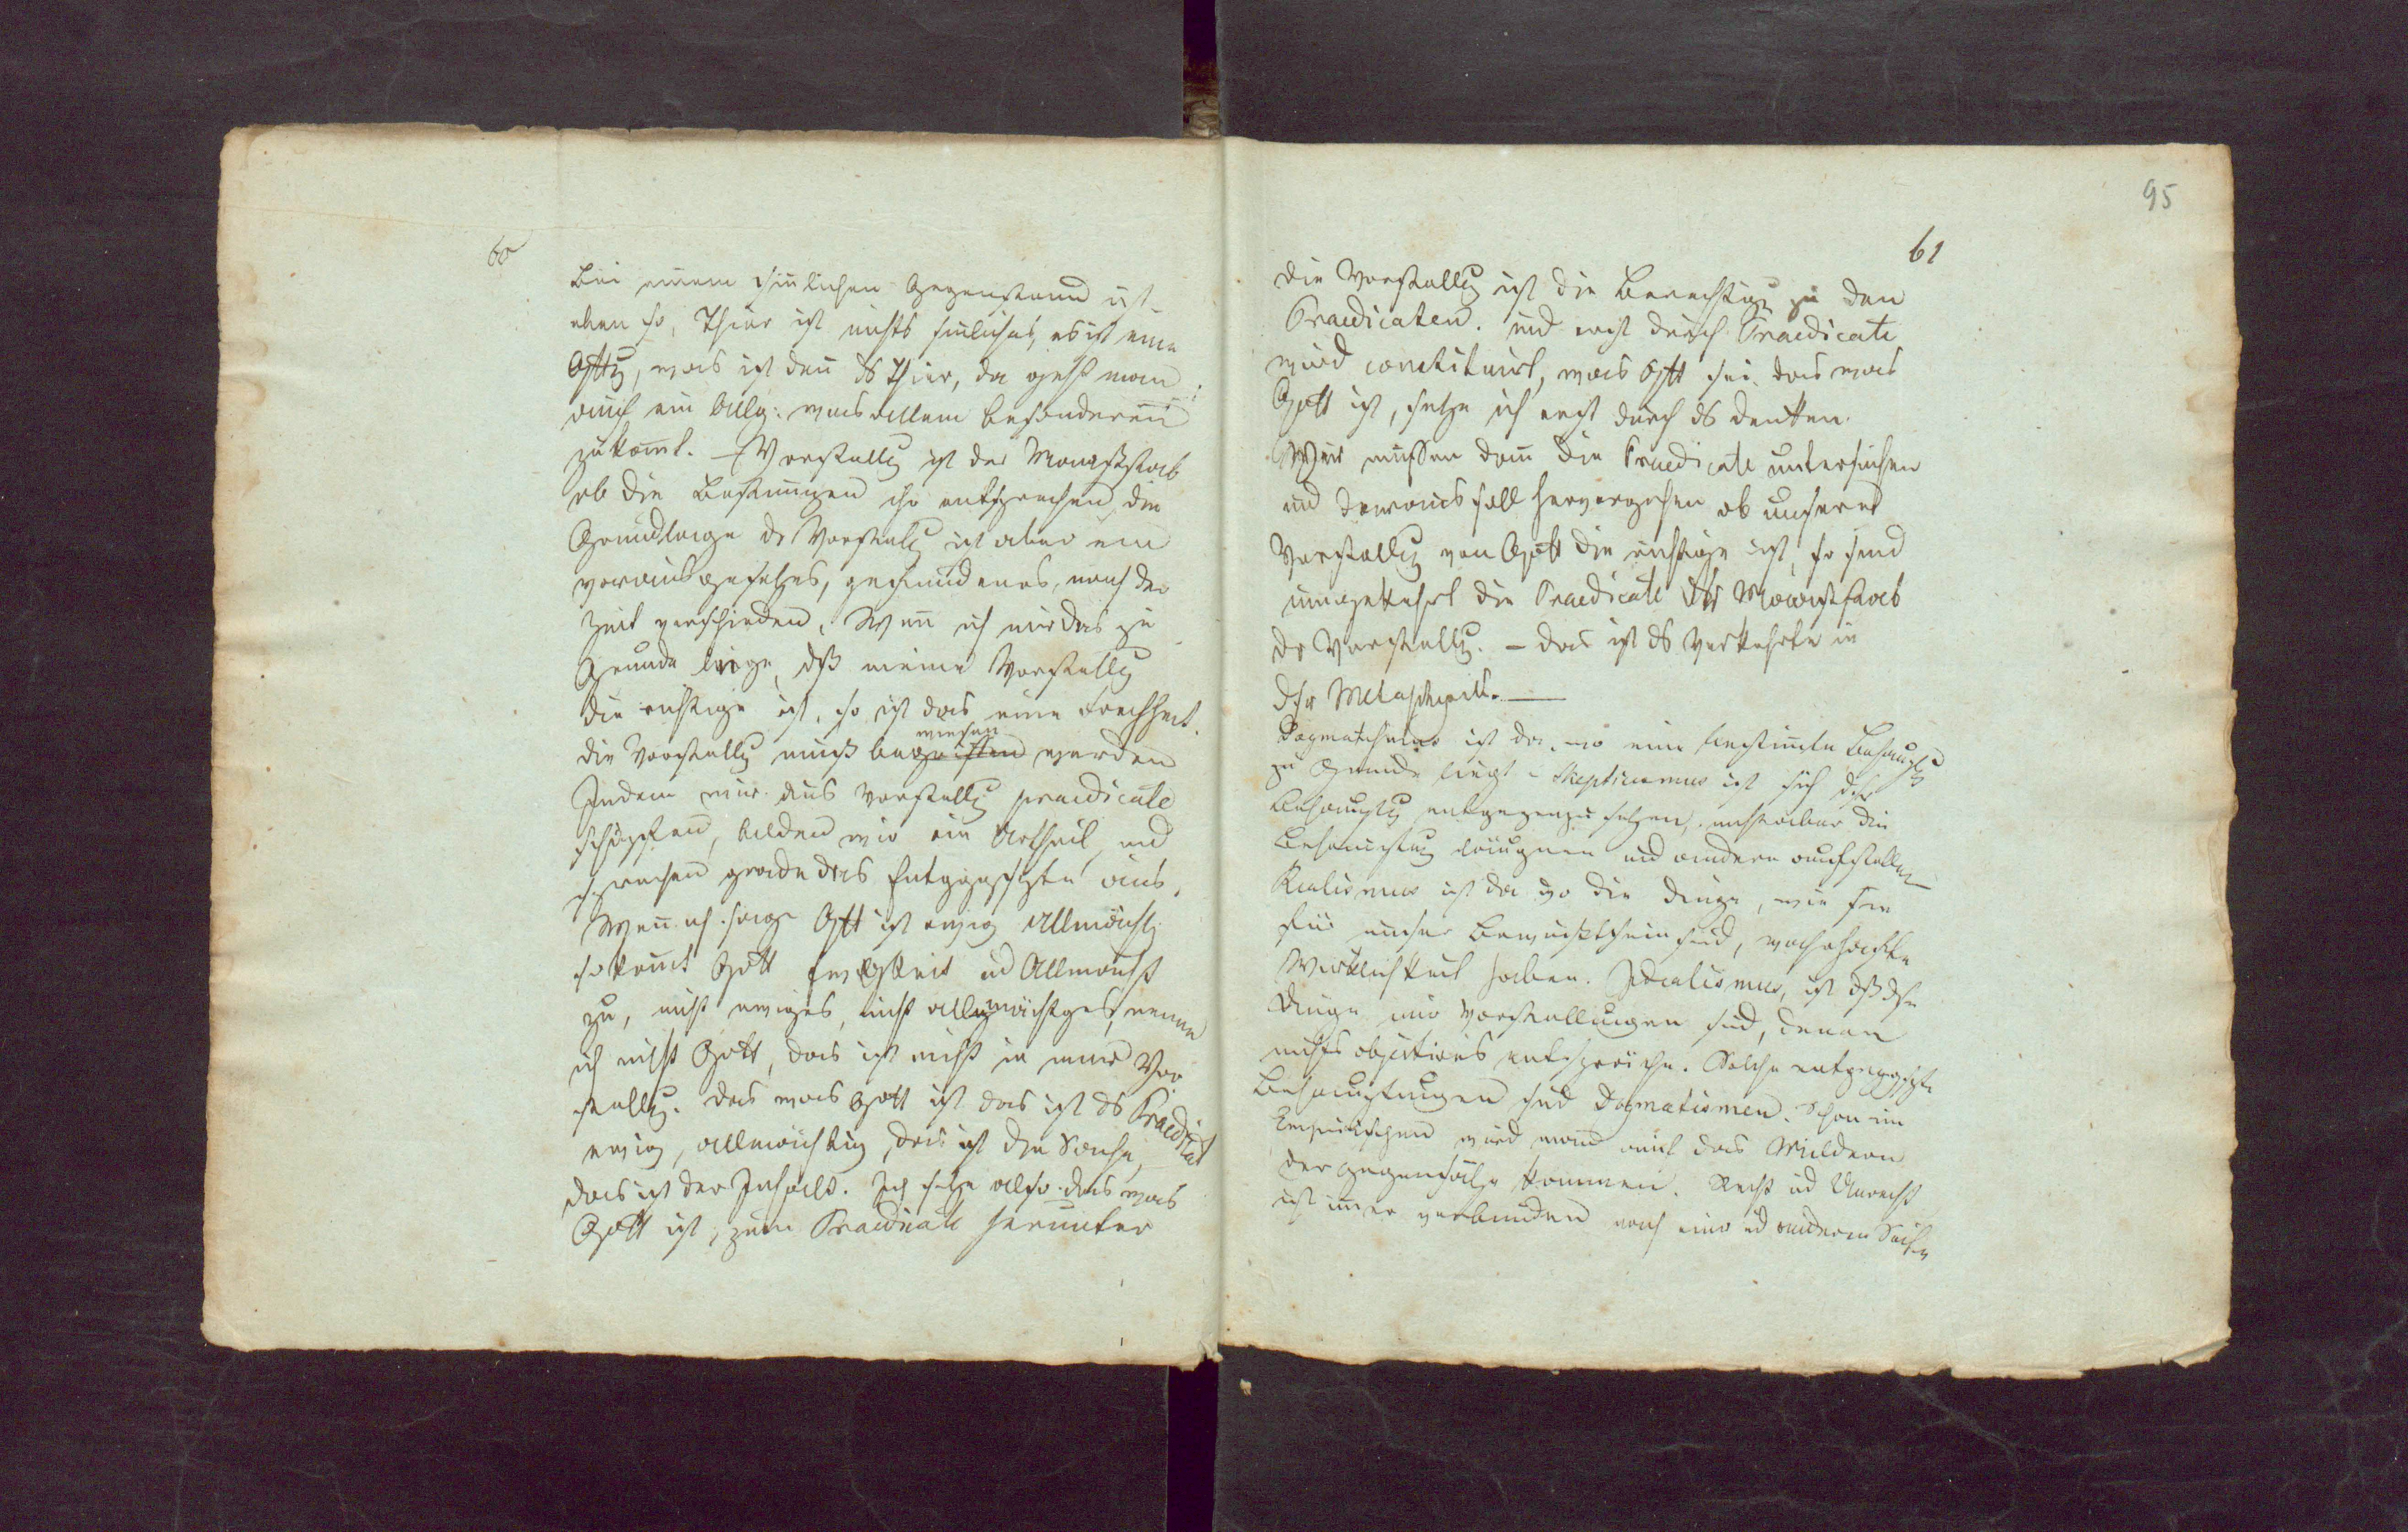 60
Bei einem sinlichen Gegenstand ist
eben so, Thier ist nichts sinliches, es ist eine
was ist den ds Thier, da geht man
auch ein Allg. was allem besonderen
zukomt. – Vorstellg ist der Maaßstab
ob die Bestimungen ihr entsprechen, die
Grundlage dr Vorstellg ist aber ein
vorausgesetztes, gefundenes, nach der
Zeit verschieden. Wen ich mir das zu
Grunde liege, dß meine Vorstellg
die richtige ist, so ist das eine Frechheit.
wiesen
die Vorstellg muß begriffen werden
Indem wir aus Vorstellg praedicate
schöpfen, bilden wir ein Urtheil, und
sprechen grade das Entggesetzte aus.
Wen ich sage Gott ist ewig allmächtg
so komt Gott Ewigkeit ud Allmacht
zu, nicht ewiges, nicht allmächtges, nenne
ich nicht Gott, das ist nicht in meiner Vor
stellg. Das was Gott ist das ist ds Praedicat
ewig, allmächtig, das ist die Sache,
das ist der Inhalt. Ich setze also das was
Gott ist, zum Praedicate herunter
95
61
die Vorstellg ist die Berechtigg zu den
Praedicaten. und erst durch Praedicate
wird constituirt, was Gott sei. das was
Gott ist, setze ich erst durch ds denken.
Wir mussen dan die Praedicate untersuchen
und daraus soll hervorgehen ob unsere
Vorstellg von Gott die richtige ist, so sind
umgekehrt die Praedicate der Maaßstab
dr Vorstellg. – das ist ds Verkehrte in
dsr Metaphysik. —
Dogmatismus ist da, wo eine bestimte Behauptg
zu Grunde liegt – Skepticismus ist sich dsr
Behauptg entgegenzusetzen, entweder die
Behauptung läugnen und andere aufstellen
Realismus ist da wo die Dinge, wie sie
für unser Bewußtsein sind, wahrhafte
Wirklichkeit haben. Idealismus, ist dß dse
Dinge nur Vorstellungen sind, denen
nichts objectives entspräche. Solche entgeggesetzte
Behauptungen sind Dogmatismen. Schon im
Empirischen wird man auf das Mildern
der Gegensätze kommen. Recht ud Unrecht
ist immer verbunden nach einer ud anderen Seite